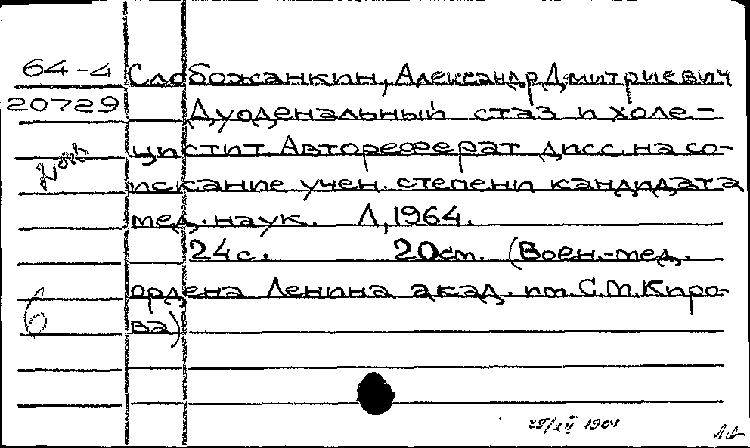 64-4 Слобожанкин, Александр Дмитриевич
20729 Дуоденальный стаз и холе-
цистит. Автореферат дисс. на со-
искание учен. степени кандидата
мед. наук. Л, 1964.
24с. 20см. (Воен.-мед.
ордена Ленина акад. им. С.М.Киро-
ва)
б